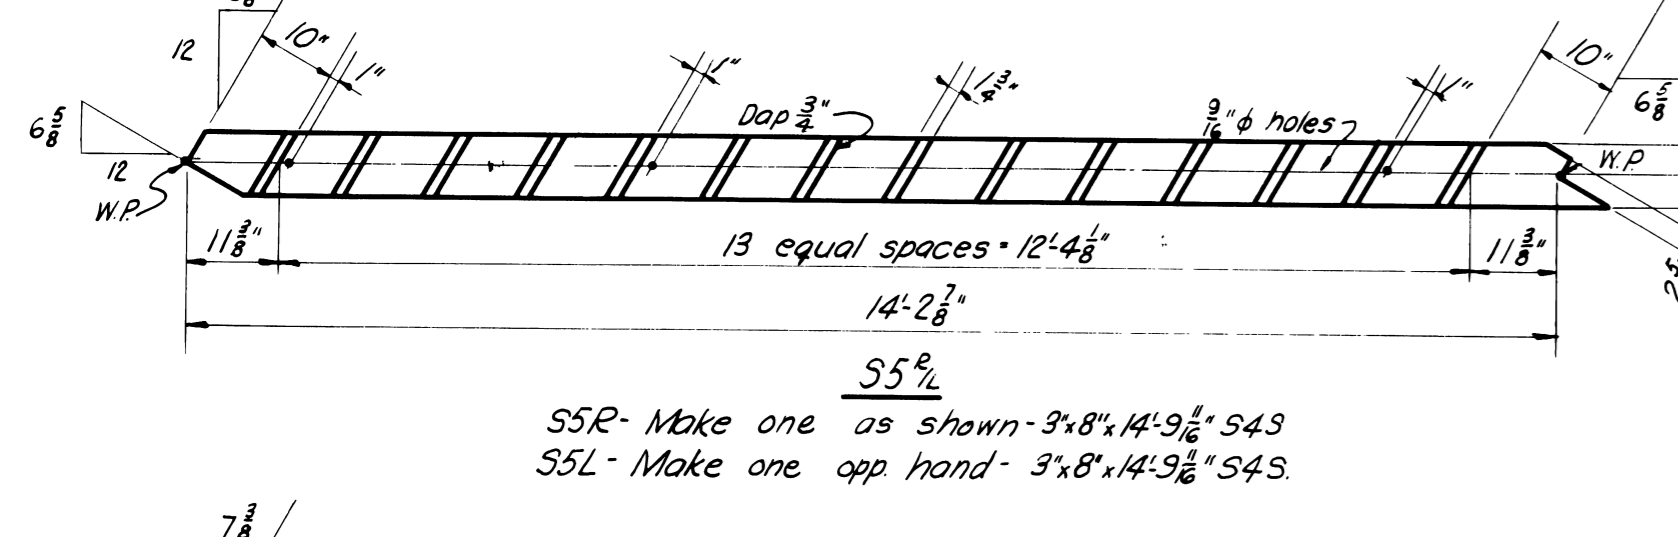 8
12
10"
1"
1"
1 3/4"
1"
10"
6 5/8
Dap 3/4"
9/16" ϕ holes
6 5/8
12
W.P.
W.P.
11 3/8"
13 equal spaces = 12'-4 1/8"
11 3/8"
14'-2 7/8"
S5 R/L
S5R- Make one as shown - 3"x8"x14'-9 11/16" S4S
S5L- Make one opp. hand - 3"x8"x14'-9 11/16" S4S.
7 3/8